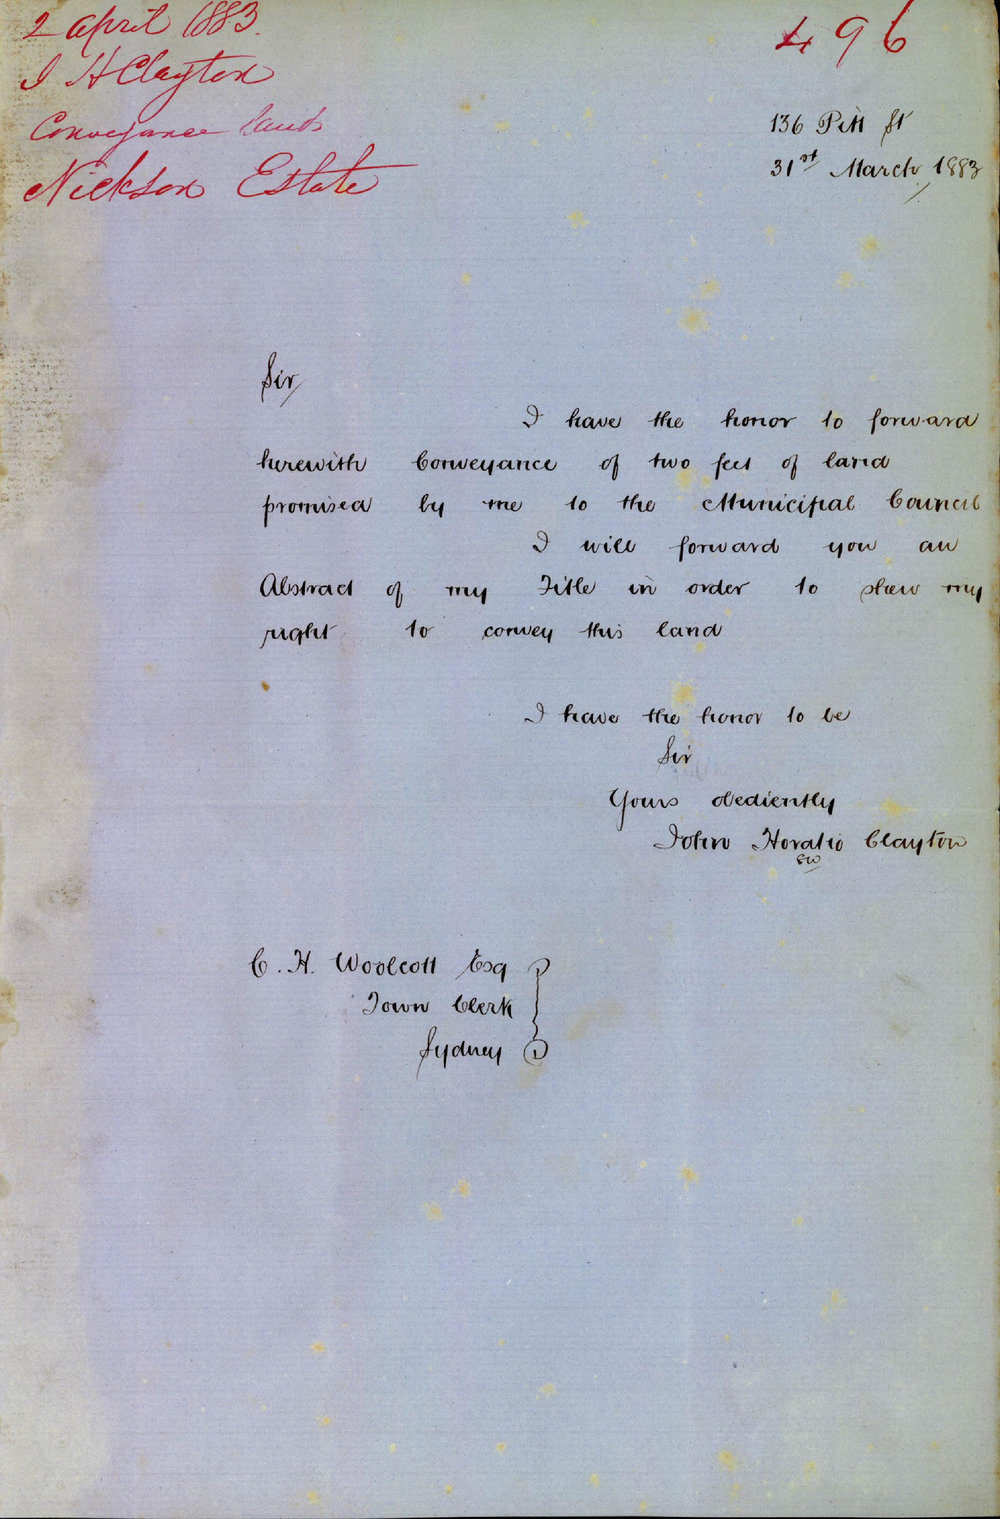 2 April 1883.
J H Clayton
Conveyance lands
Nickson Estate
496
136 Pitt St
31st March, 1883
Sir
I have the honor to forward
herewith Conveyance of two feet of land
promised by me to the Municipal Council
I will forward you an
Abstract of my Title in order to shew my
right to convey this land
I have the honor to be
Sir
Yours obediently
John Horatio Clayton
C. H. Woolcott Esq
Town Clerk
Sydney